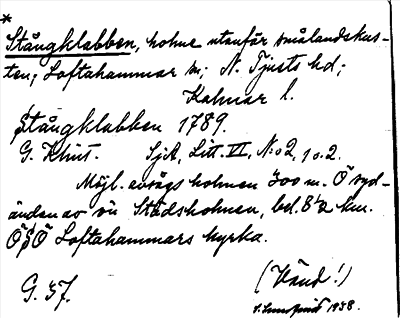 *
Stångklabben, holme utanför smålandskus-
ten; Loftahammar sn; N. Tjusts hd;
Kalmar l.
Stångklabben 1789.
G. Klint. SjA, Litt. VI, No 2, 1 o. 2.
Möjl. avsågs holmen 300 m. Ö syd-
änden av ön Stadsholmen, bel. 8 1/2 km.
ÖSÖ Loftahammars kyrka.
(Vänd!)
G. 57.
1958.